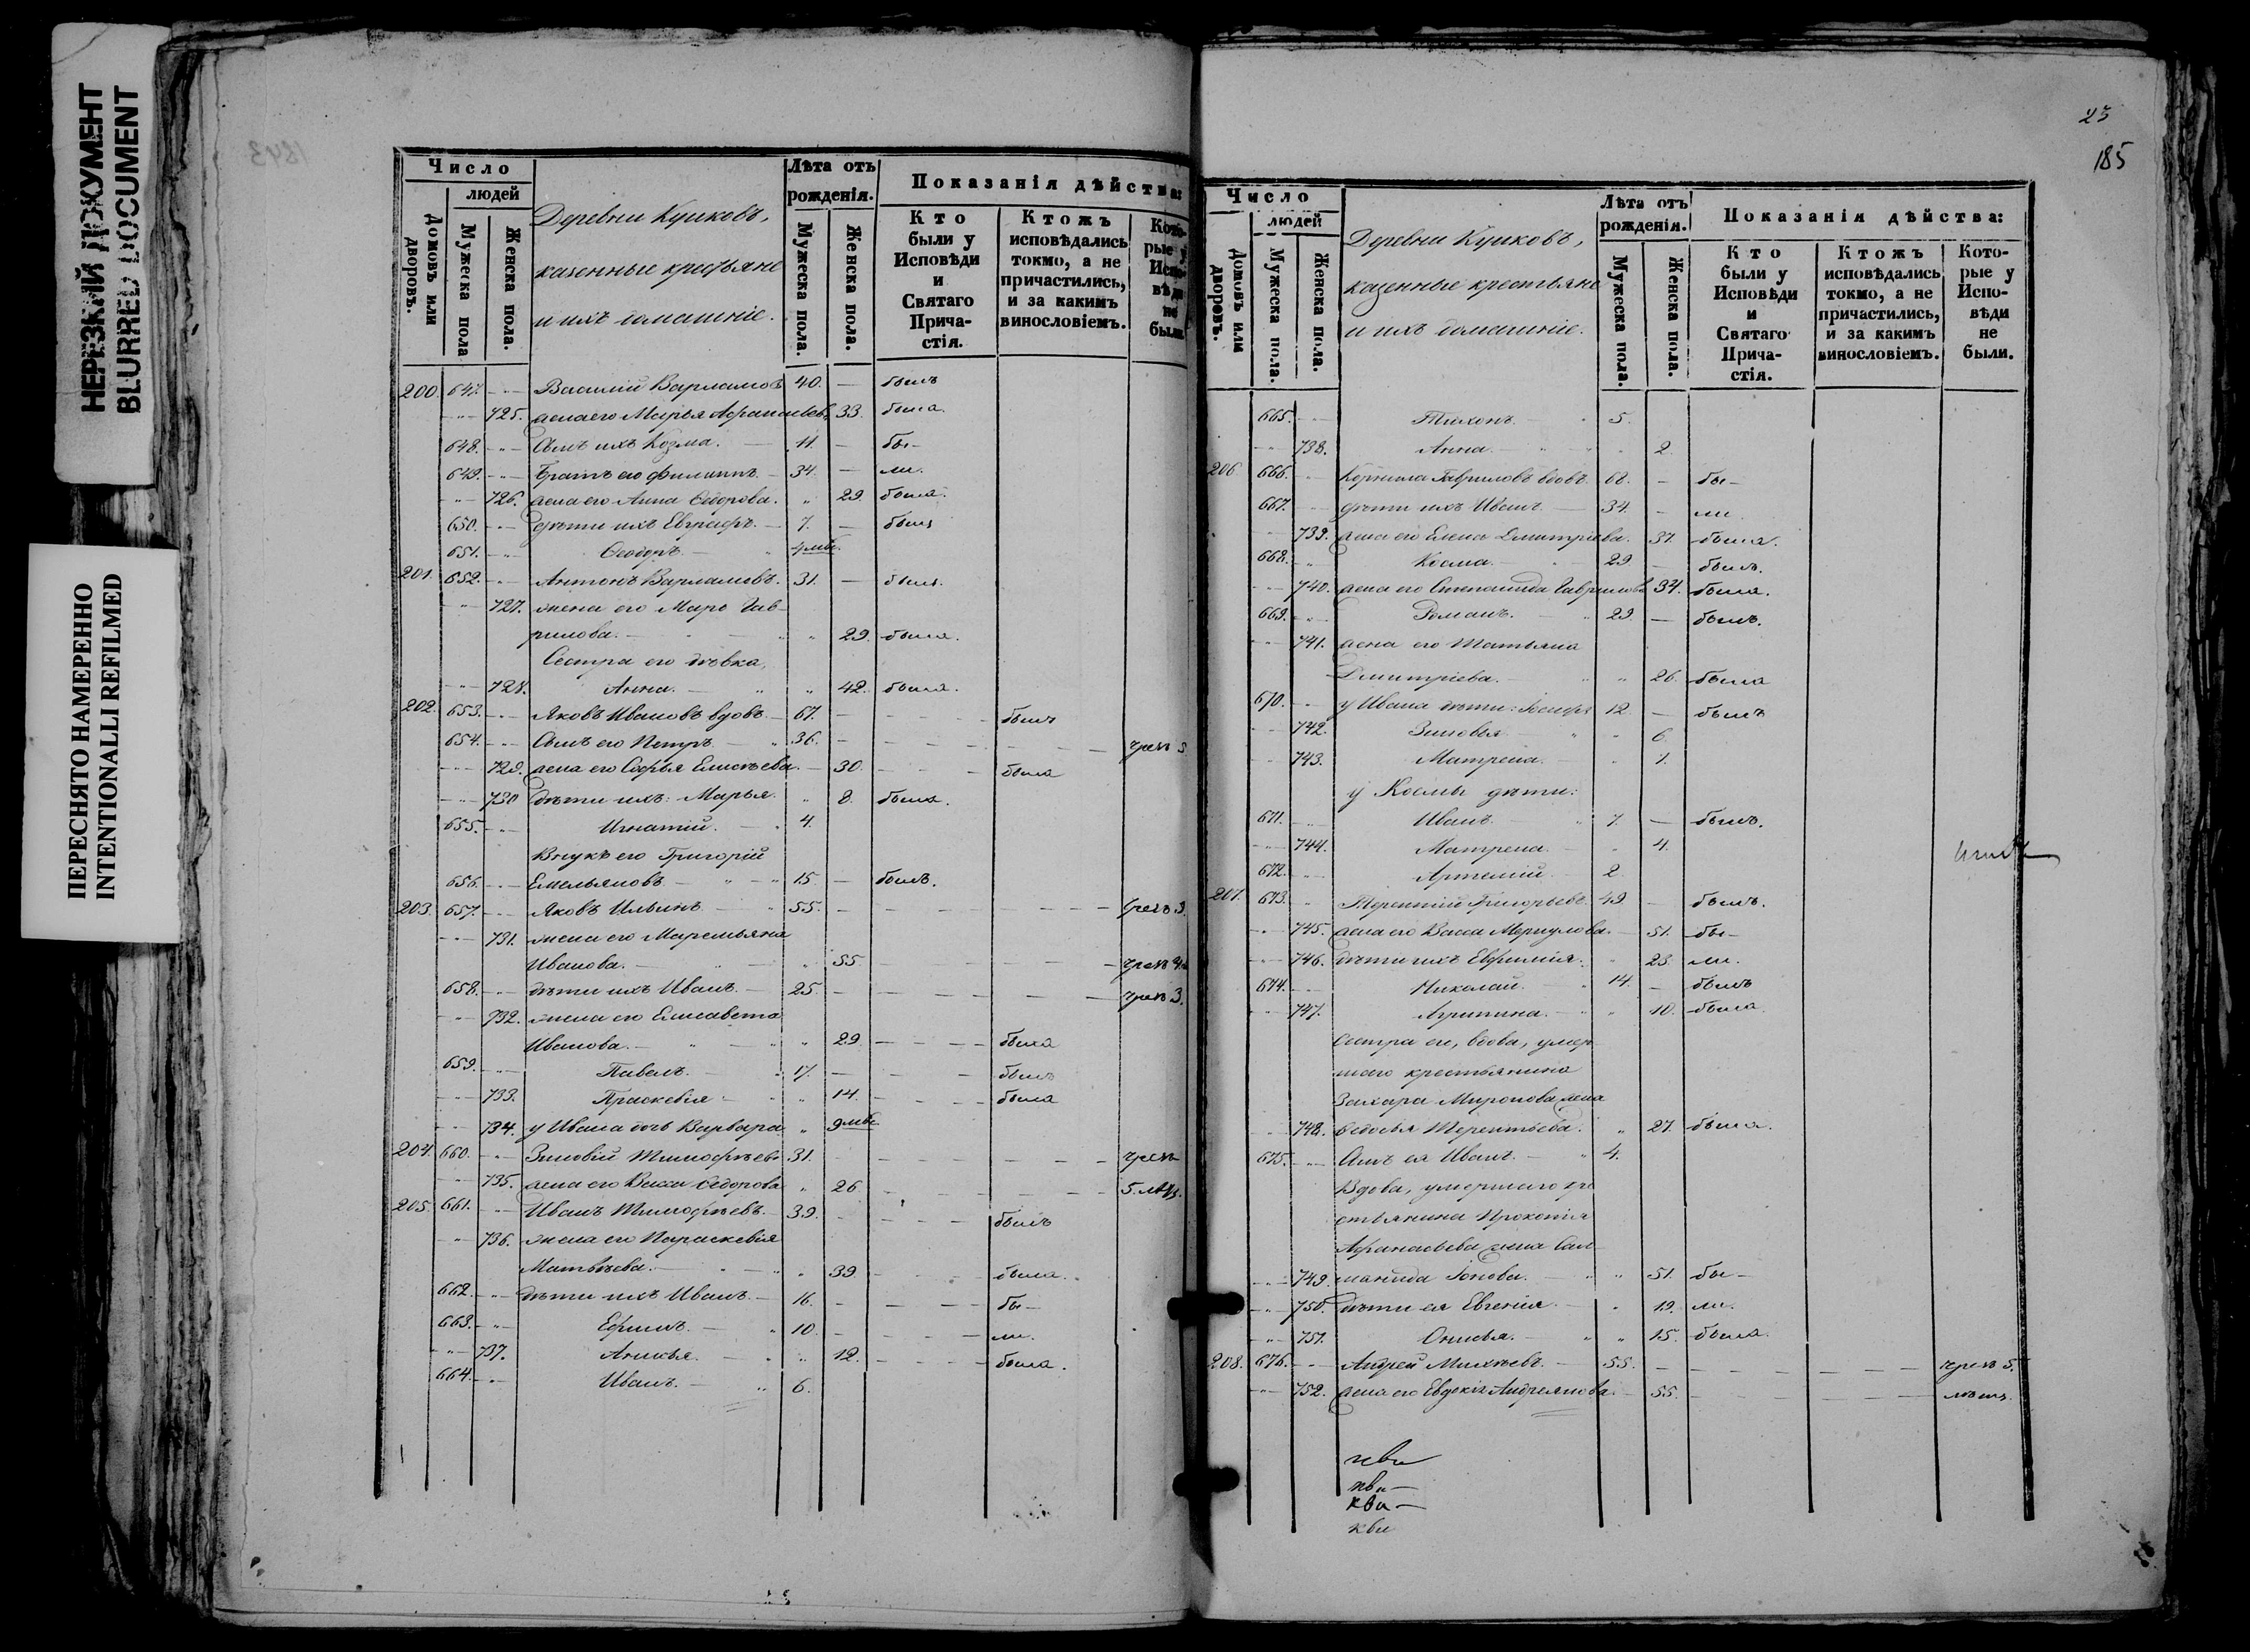 НЕРЕЗКИЙ ДОКУМЕНТ
BLURRED DOCUMENT
ПЕРЕСНЯТО НАМЕРЕННО
INTENTIONALLI REFILMED
Число
людей
Домовъ или дворовъ.
Мужеска пола
Женска пола.
Деревни Куиковъ,
казенные крестьяне
и ихъ домашніе.
Лѣта отъ рожденія.
Мужеска пола.
Женска пола.
Показанія дѣйства:
Кто были у Исповѣди и Святаго Причастія.
Ктожъ исповѣдались токмо, а не причастились, и за какимъ винословіемъ.
Которые у Исповѣди не были.
200. 647. Василій Варламовъ 40. — былъ
725. жена его Марья Афанасьева 33. была.
648. Сынъ ихъ Козма. 11 — бы-
649. Братъ его Филиппъ 34. — ли.
726. жена его Анна Ѳедорова. 29. была.
650. дѣти ихъ Евграфъ. 7. — былъ
651. Ѳеодоръ. 4 мѣс.
201. 652. Антонъ Варламовъ. 31. — былъ.
727. жена его Марѳ Гав-
рилова. 29. была.
Сестра его дѣвка,
728. Анна. 42. была.
202. 653. Яковъ Ивановъ вдовъ 67. былъ
654. Сынъ его Петръ 36. чрезъ 3
729. жена его Софья Елисѣева. 30. была
730 дѣти ихъ: Марья. 8. была.
655. Игнатій. 4.
Внукъ его Григорій
656. Емельяновъ 15. — былъ.
203. 657. Яковъ Ильинъ 55. чрезъ 3.
731. жена его Маремьяна
Иванова. 55. чрезъ 4.
658. дѣти ихъ Иванъ. 25. чрезъ 3.
732. жена его Елисавета
Иванова. 29. была
659. Павелъ. 17. былъ
733. Праскевія 14. была
734. у Ивана дочь Варвара 9 мѣс
204. 660. Зиновій Тимофѣевъ 31. чрезъ
735. жена его Васса Ѳедорова 26 5. лѣтъ.
205. 661. Иванъ Тимофѣевъ. 39. былъ
736. жена его Параскевія
Матвѣева. 39 была.
662. дѣти ихъ Иванъ. 16. бы-
663. Ефимъ. 10. ли.
737. Анисья. 12. была.
664. Иванъ. 6.
25
185
Число
людей
Домовъ или дворовъ.
Мужеска пола.
Женска пола.
Деревни Куиковъ,
казенные крестьяне
и ихъ домашніе.
Лѣта отъ рожденія.
Мужеска пола.
Женска пола.
Показанія дѣйства:
Кто были у Исповѣди и Святаго Причастія.
Ктожъ исповѣдались токмо, а не причастились, и за какимъ винословіемъ.
Которые у Исповѣди не были.
665. Тихонъ. 5.
738. Анна. 2.
206 666. Корнила Гавриловъ вдовъ 62. — бы-
667. дѣти ихъ Иванъ 34. — ли.
739. жена его Елена Димитріева. 37. была.
668. Косма. 29 — былъ.
740. жена его Степанида Гаврилова 34. была.
669. Романъ. 29. — былъ.
741. жена его Татьяна
Димитріева. 26. была
670. у Ивана дѣти: Іосифъ 12. — былъ
742. Зиновья 6.
743. Матрена. 1.
у Космы дѣти:
671. Иванъ. 7. — былъ.
744. Матрена. 4.
672. Артемій 2.
207. 673. Терентій Григорьевъ. 49. — былъ.
745. жена его Васса Меркулова. 51. бы-
746. дѣти ихъ Евфимія. 23. ли.
674. Николай. 14. — былъ
747. Агрипина. 10. была.
Сестра ея, вдова, умер-
шаго крестьянина
Захара Миронова жена
748. Ѳедосья Терентьева. 27. была.
675. Сынъ ея Иванъ. 4.
Вдова, умершаго кре
стьянина Прокопія
Афанасьева жена Сал-
749. манида Іонова. 51. бы-
750. дѣти ея Евгенія. 19. ли.
751. Онисья. 15. была.
208. 676. Андрей Михѣевъ. 55. чрезъ 5.
752. жена его Евдокія Андреянова. 55. лѣтъ.